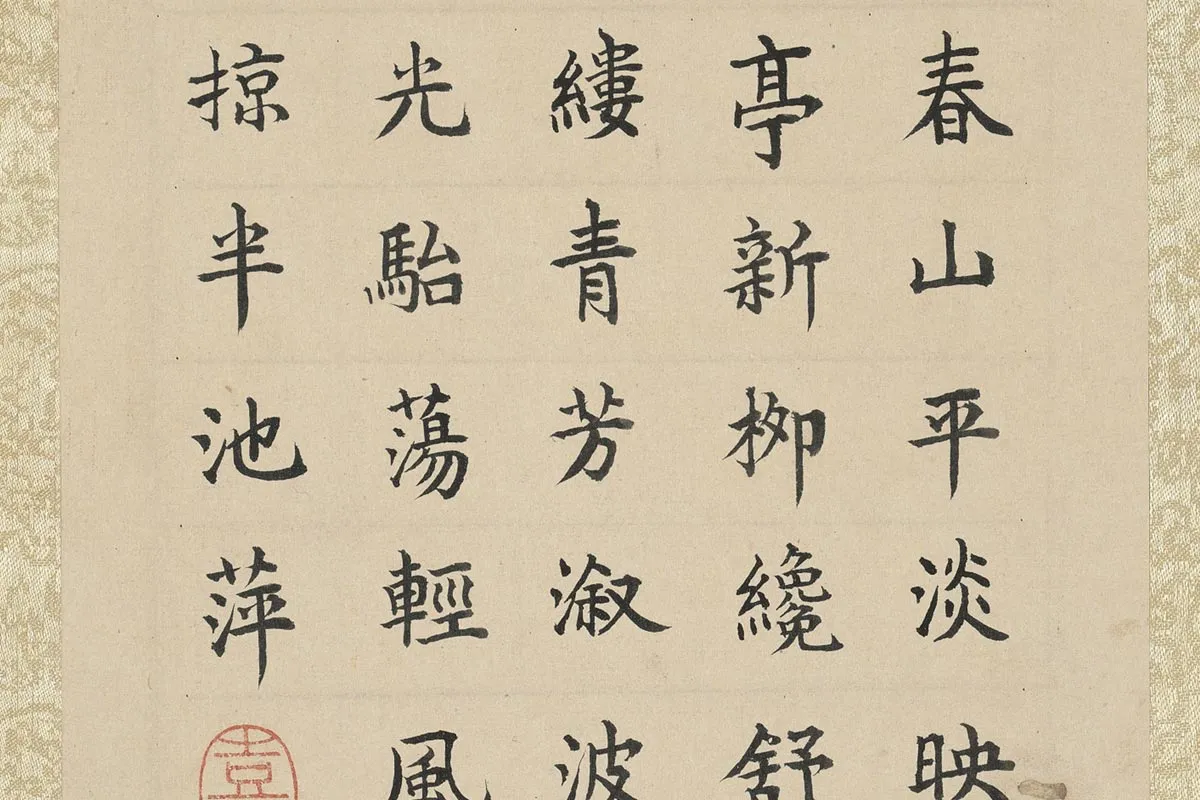 春山平淡映
亭新柳纔舒
縷青芳溆波
光駘蕩輕風
掠半池萍